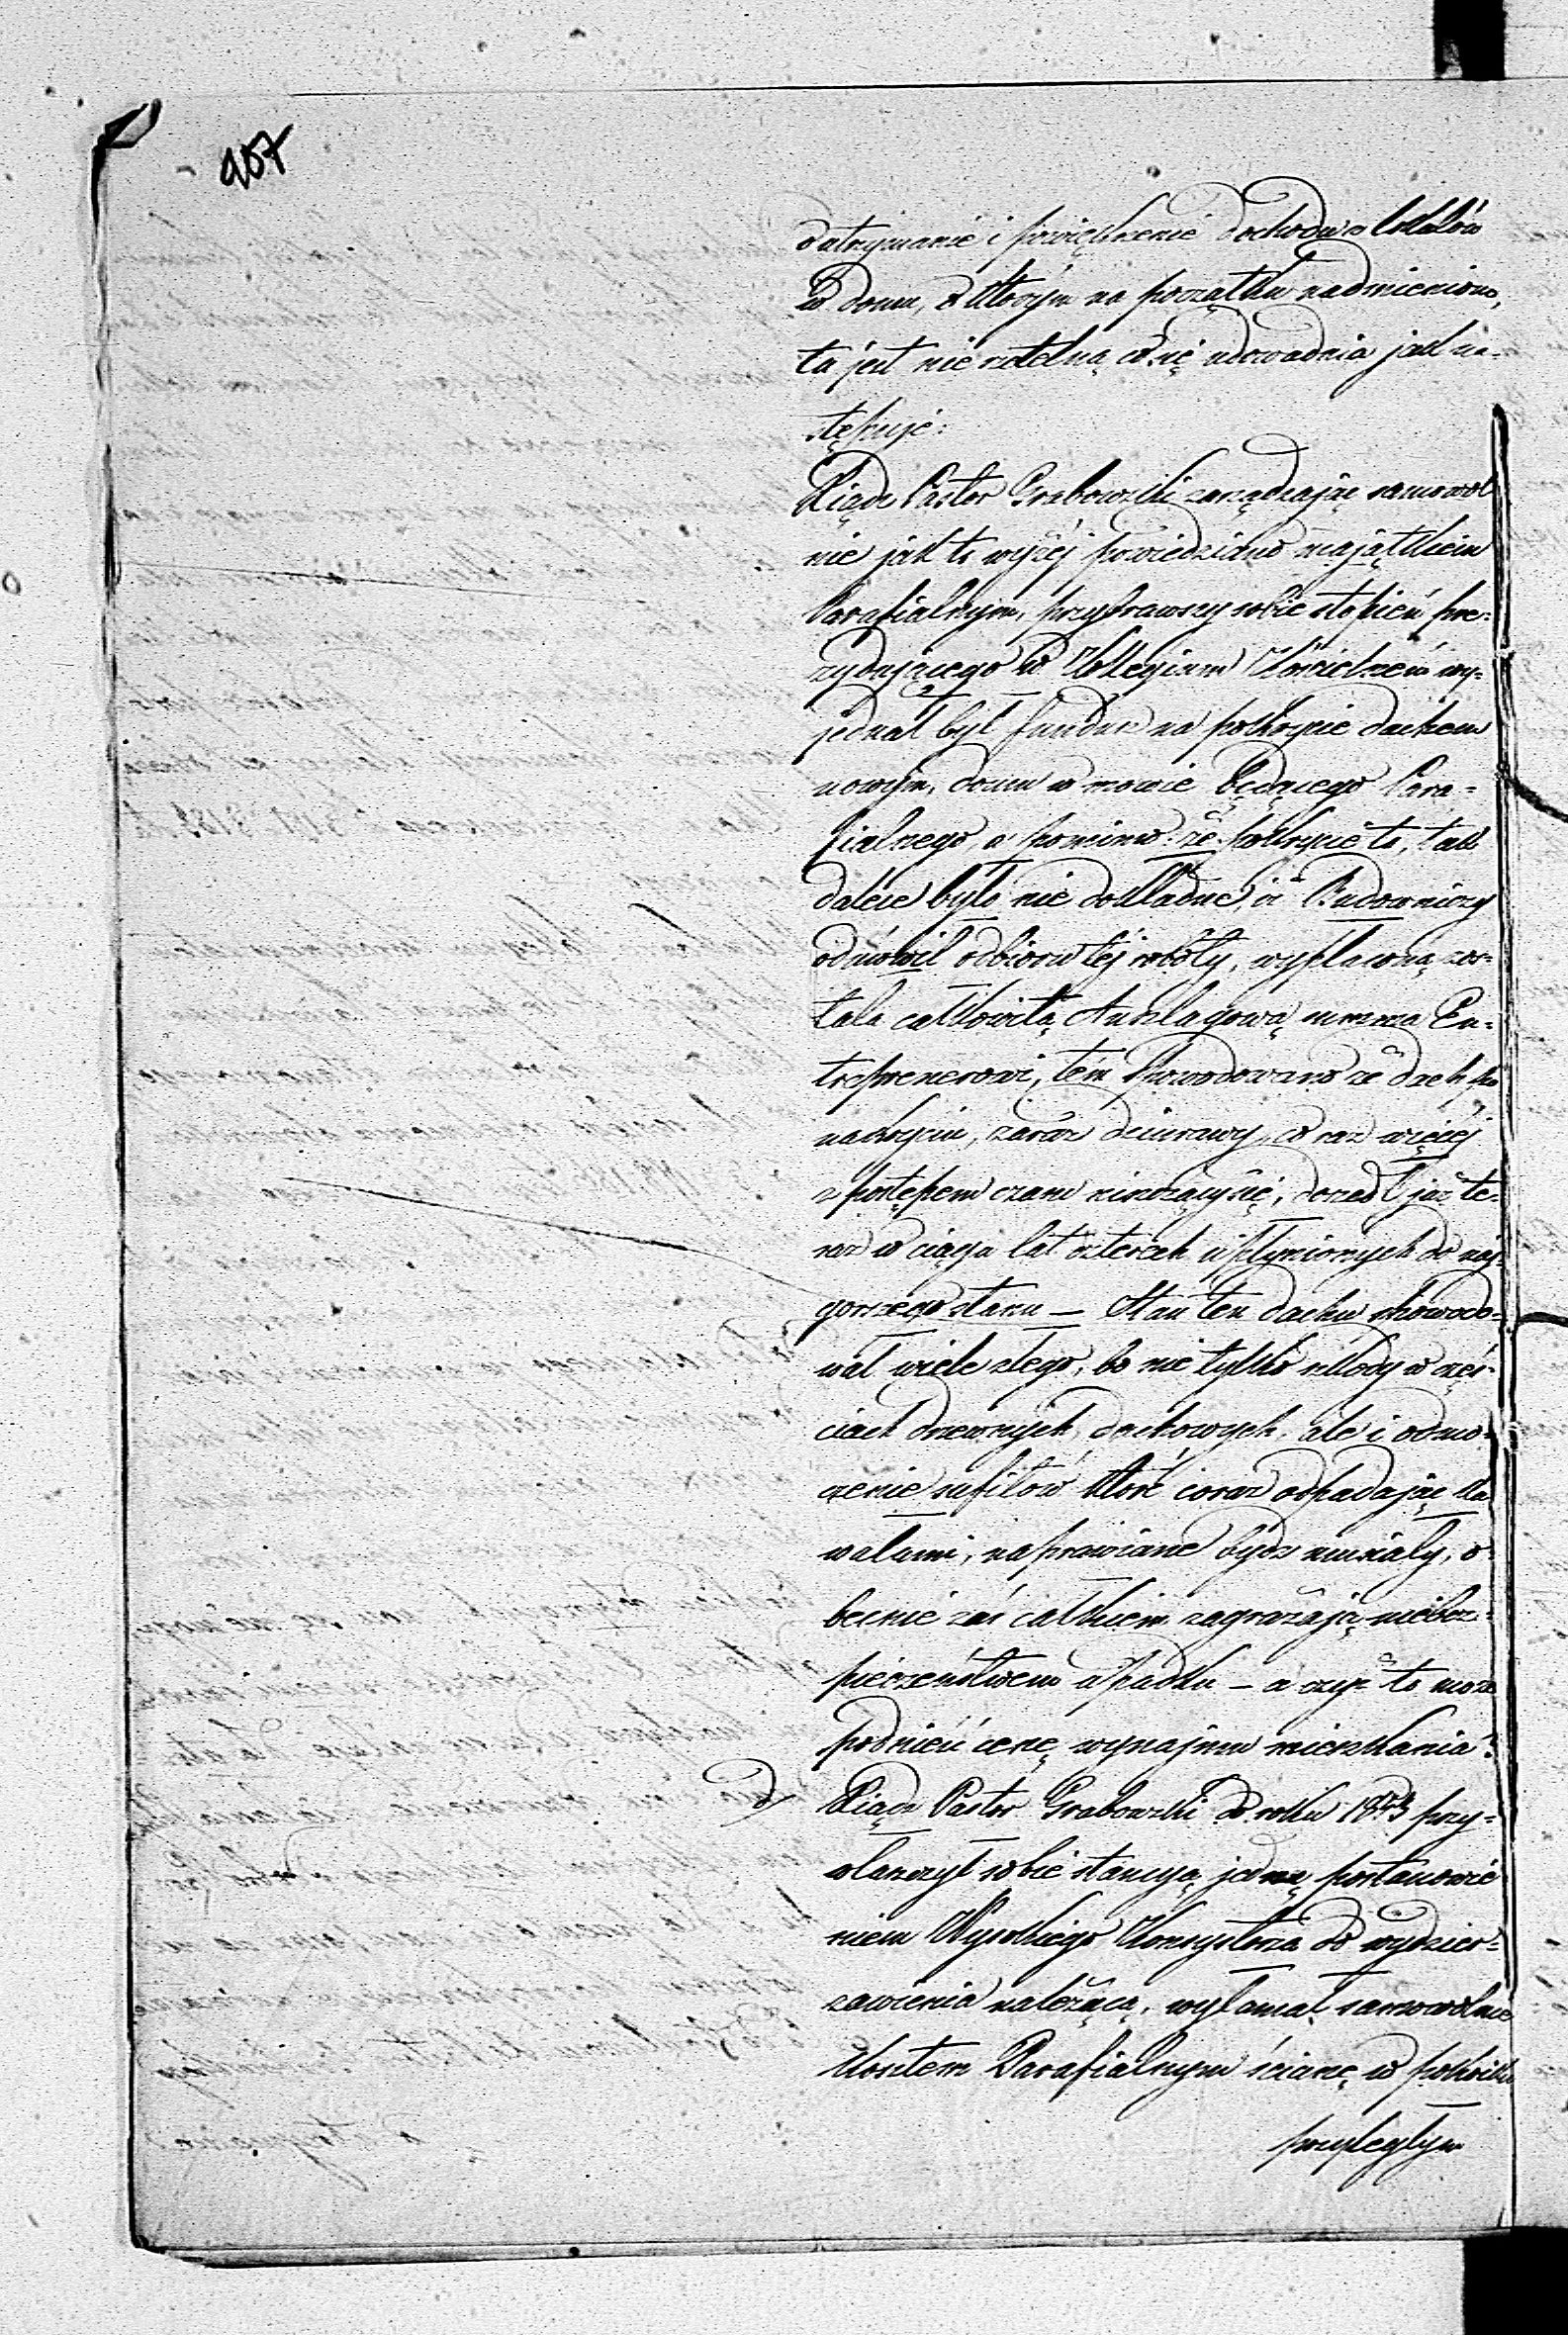 407
o utrzymanie i powiększenie dochodu z lokalów
w domu, o którym na początku nadmieniono,
ta jest nie rzetelną, co się udowadnia jak na-
stępuje:
Xiądz Pastor Grabowski zarządzając samowol
nie jak to wyżéj powiedziano majątkiem
Parafialnym, przybrawszy sobie stopień pre-
zydującego w Kollegium Kościelném wy-
jednał był fundusz na pokrycie dachem
nowym, domu w mowie będącego Para-
fialnego, a pomimo że pokrycie to, tak
dalece było nie dokładne, iż Budowniczy
odmówił odbioru téj roboty, wypłaconą zos-
tała całkowita Anszlagowa summa En-
treprenerowi, tém spowodowano że dach po
nakryciu, zaraz dziurawy, co raz więcéj
z postępem czasu niszczący się, doszedł już te-
raz w ciągu lat czterech upłynionych do naj-
gorszego stanu — Stan ten dachu spowodo-
wał wiele złego, bo nie tylko szkody w częś-
ciach drzewnych dachowych, ale i odmo-
czenie sufitów które coraz odpadając ka
wałami, naprawiane bydź musiały, o-
becnie zaś całkiem zagrażają niebez-
pieczeństwem upadku — a czyż to może
podnieść cenę wynajmu mieszkania?
d/ Xiądz Pastor Grabowski do roku 1853 przy-
własczył sobie stancyą jedną postanowie
niem Wysokiego Konsystorza do wydzier-
żawienia należącą, wyłamał samowolnie
kosztem Parafialnym ścianę w pokoiku
przyległym